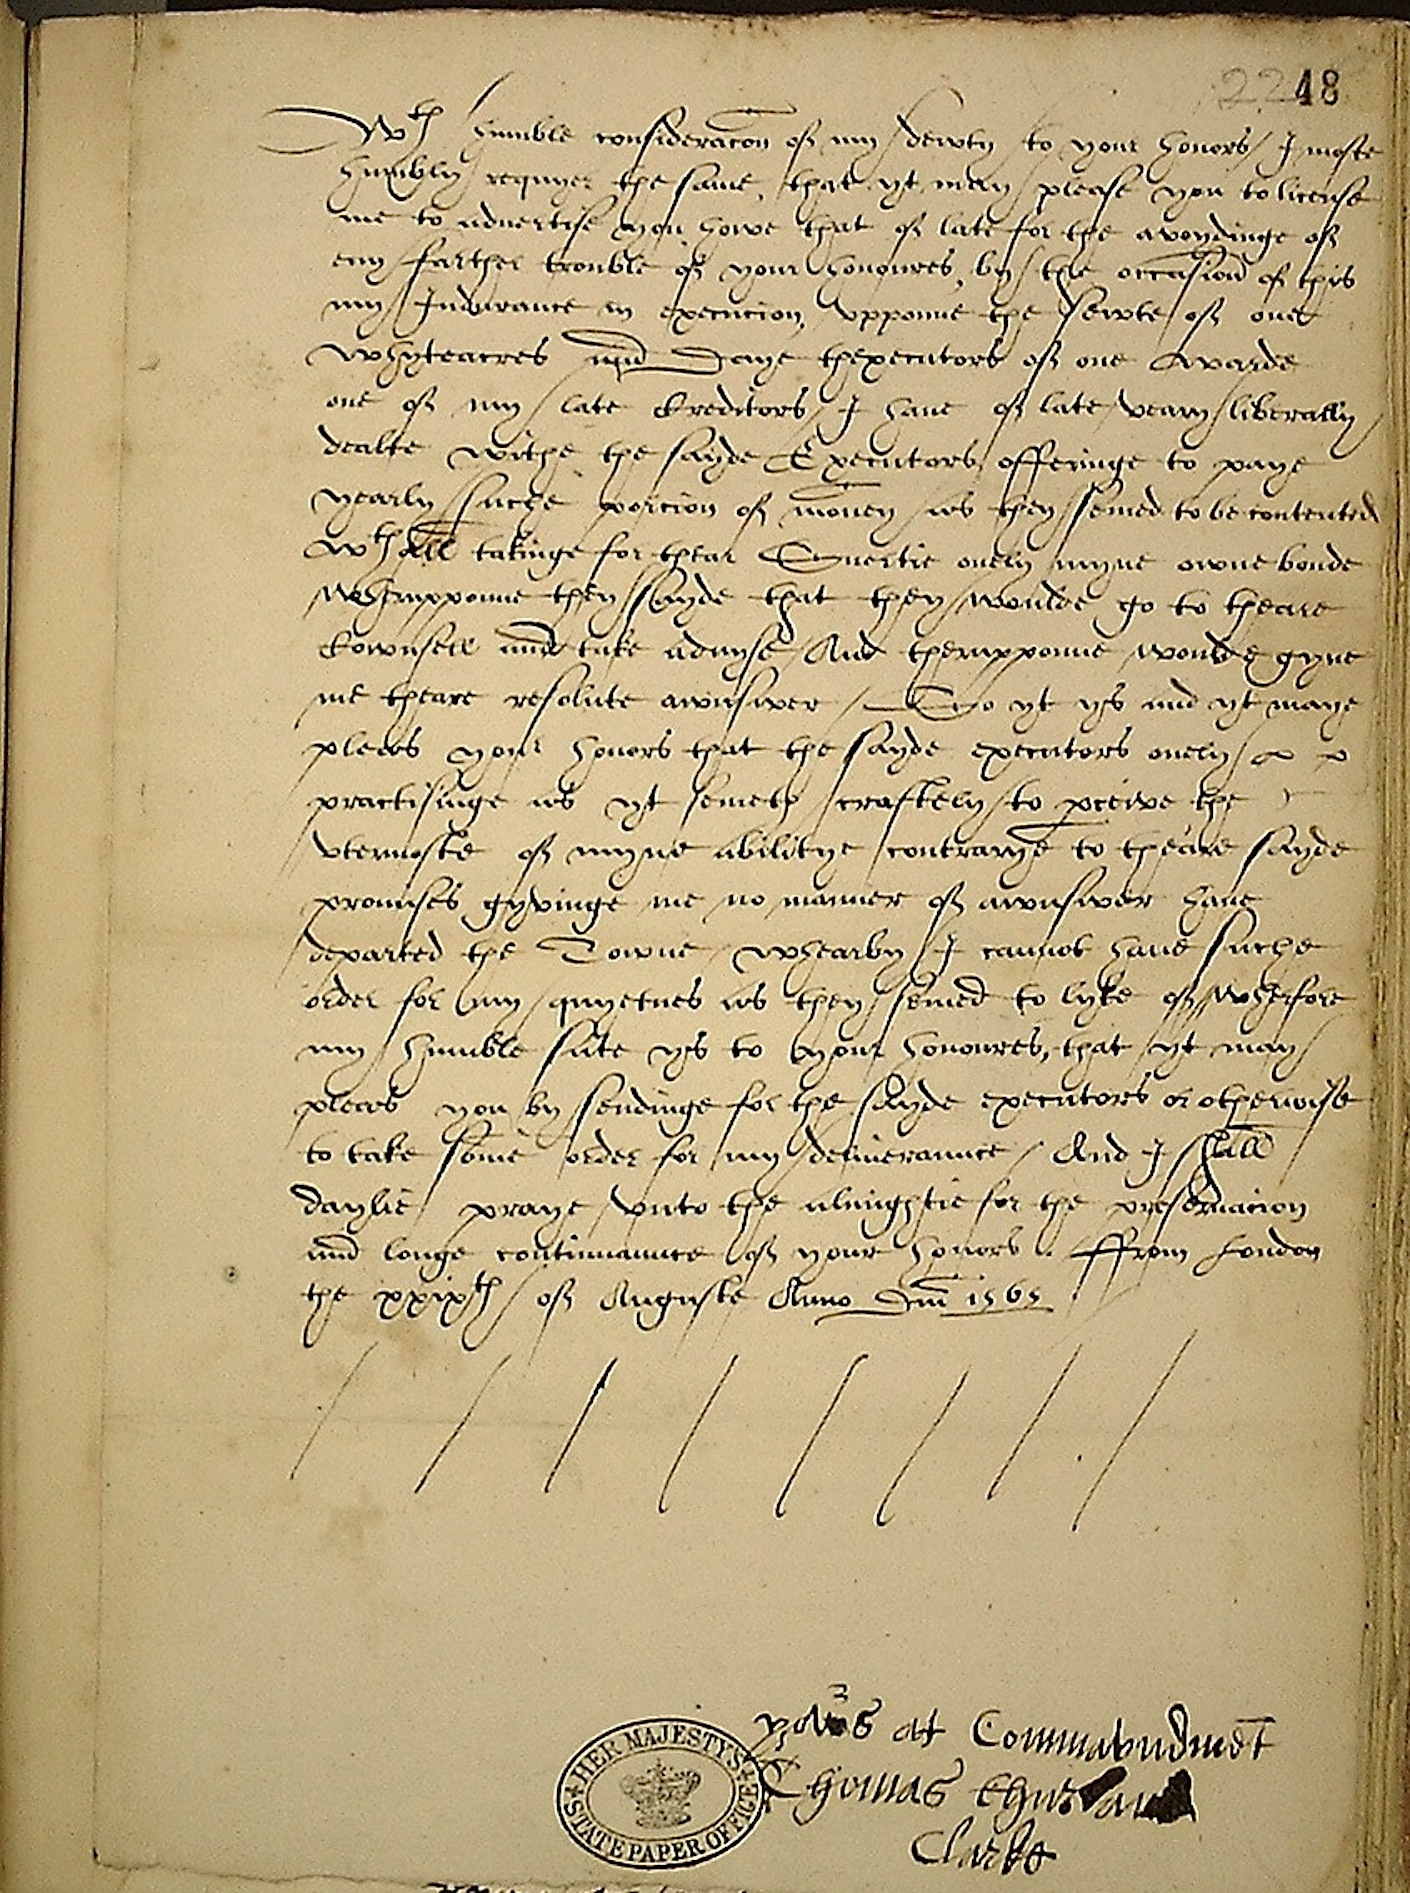 22 48
Wth humble consideracon of my dewty to your honors / I moste
humbly requyer the same, that yt may please you to license
me to advertise you howe that of late for the avoydinge of
eny farther trouble of your honoures, by the occasion of this
my Indurance in execucion, vpponne the sewte of one
Whyteacres and Daye thexecutors of one Awarde
one of my late kreditors / I haue of late veary liberally
dealte withe the sayde Executors offeringe to paye
yearly suche porcion of money as they semed to be contented
wthall takinge for thear Suertie onely myne owne bonde
Wherupponne they sayde that they woulde go to theare
kownsell and take aduyse / And therupponne woulde gyue
me theare resolute awnswer / So yt ys and yt maye
pleas your honors that the sayde executors onely
practisinge as yt semeth craftely to pceive the
vtermoste of myne abilitye contrarye to theare sayde
promises gyvinge me no manner of awnswer haue
departed the Towne / whearby I cannot haue suche
order for my quyetnes as they semed to lyke of / Wherfore
my humble sute ys to your honoures, that yt may
pleas you by sendinge for the sayde executors or otherwise
to take some order for my deliuerannce / And I shall
daylie praye vnto the almightie for the preseruacion
and longe continuannce of your honors . ffrom London
the xxixth of Auguste Anno Dm 1565
yours at Commaundmet
Thomas
Clarke
HER MAJESTY'S STATE PAPER OFFICE